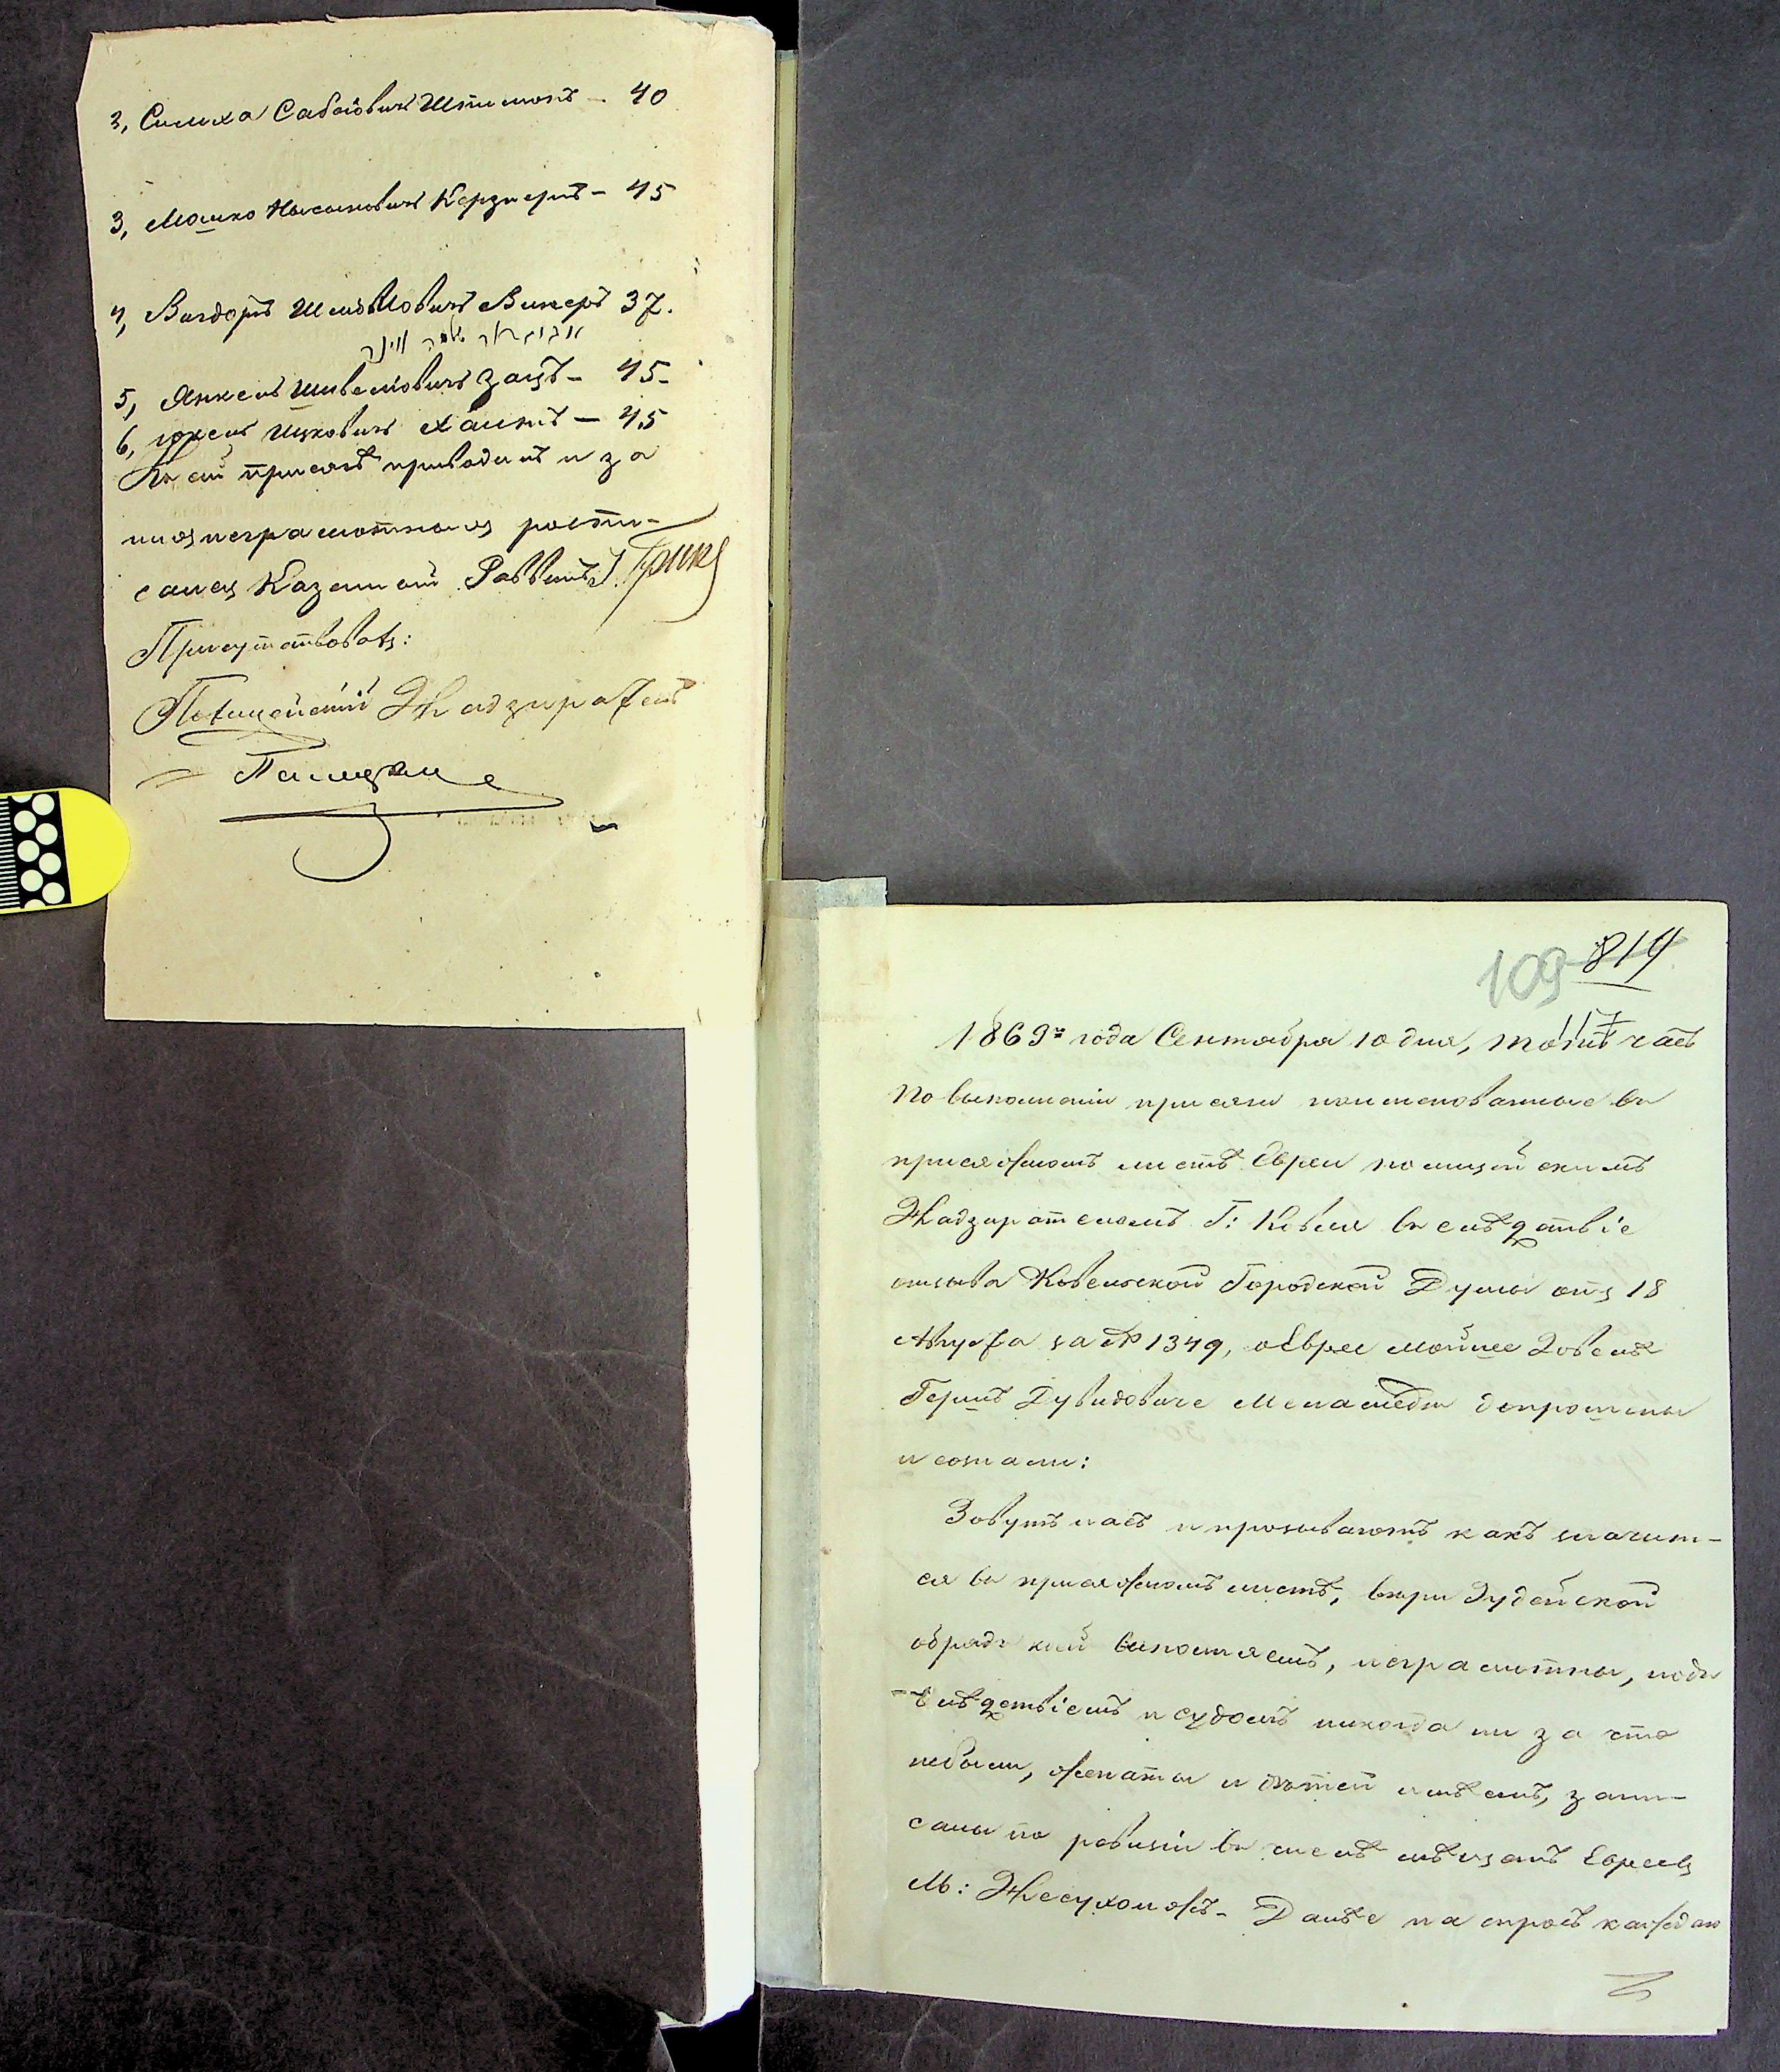 3, Симха Сабаiовичъ Штимонъ – 40
3, Мошко Нысыновичъ Керзнеръ – 45
4, Вигдоръ Шмовловичъ Винеръ 37.
5, Янкель Шивелiовичъ Заецъ – 45 –
6, Iокель Ицковичъ Хаитъ – 45
Къ сей присягѣ приводилъ и за
нихъ неграмотныхъ роспи-
сался Казенный Раввинъ
Присутствовалъ:
Полицейскiй Надзиратель
109 814
1869го года Сентября 10 дня, тотъ часъ
По выполненiи присяги поименованные въ
присяжномъ листѣ Евреи полицейскимъ
Надзирателемъ Г: Ковля въ слѣдствiе
отзыва Ковельской Городской Думы отъ 18
Августа за № 1349, о Еврее Мойше Iоселѣ
Гершѣ Дувидовиче допрошены
и сознали:
Зовутъ насъ и прозываютъ какъ значит-
ся въ присяжномъ листѣ, вѣры Iудейской
обряды коей выполняемъ, неграмотны, подъ
слѣдствiемъ и судомъ никогда ни за что
небыли, женаты и дѣтей имѣемъ, запи-
саны по ревизiи въ числѣ мѣщанъ Евреевъ
М: Несухоижъ – Далѣе на спросъ каждаго